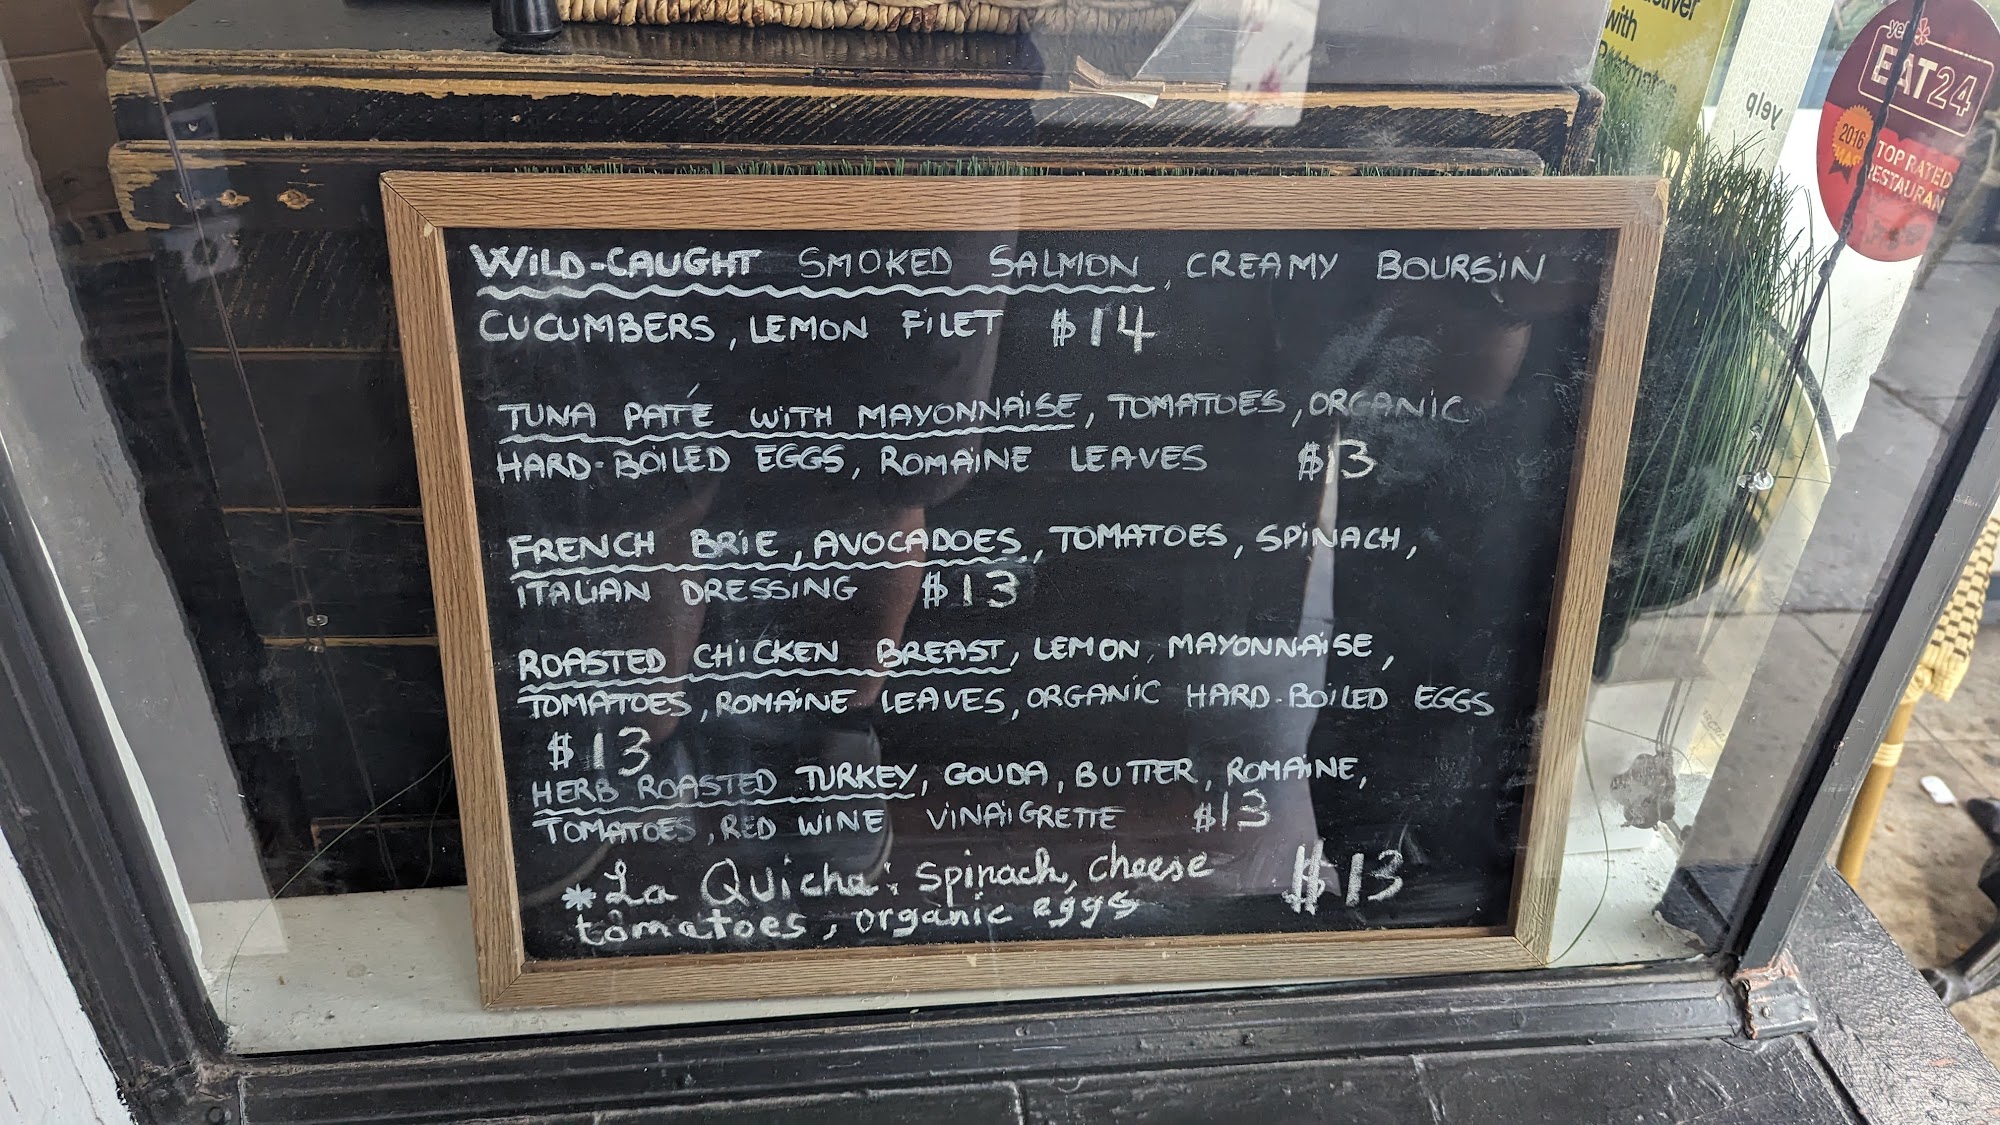 WILD-CAUGHT SMOKED SALMON, CREAMY BOURSIN
CUCUMBERS, LEMON FILET $14
TUNA PATÉ WITH MAYONNAISE, TOMATOES, ORGANIC
HARD-BOILED EGGS, ROMAINE LEAVES $13
FRENCH BRIE, AVOCADOES, TOMATOES, SPINACH,
ITALIAN DRESSING $13
ROASTED CHICKEN BREAST, LEMON, MAYONNAISE,
TOMATOES, ROMAINE LEAVES, ORGANIC HARD-BOILED EGGS
$13
HERB ROASTED TURKEY, GOUDA, BUTTER, ROMAINE,
TOMATOES, RED WINE VINAIGRETTE $13
* La Quicha: Spinach, cheese $13
tomatoes, organic eggs
with
yelp
yelp
EAT24
2016
TOP RATED